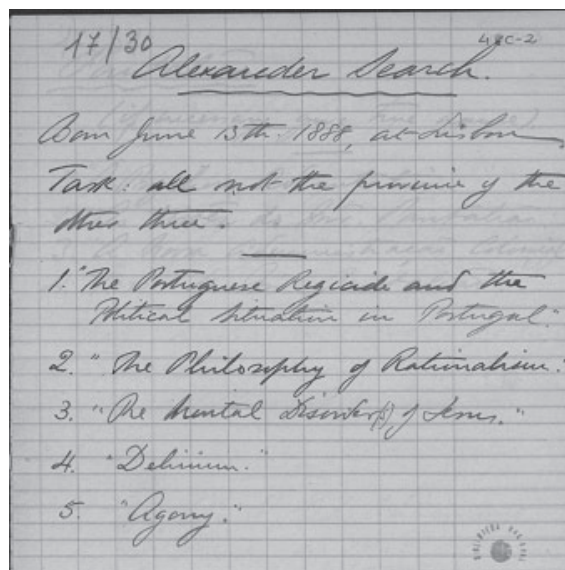 17/30
48C-2
Alexander Search.
Born June 13th 1888, at Lisbon.
Task: all not the province of the
other three.
1. "The Portuguese Regicide and the
Political Situation in Portugal."
2. "The Philosophy of Rationalism."
3. "The Mental Disorder(s) of Jesus."
4. "Delirium."
5. "Agony."